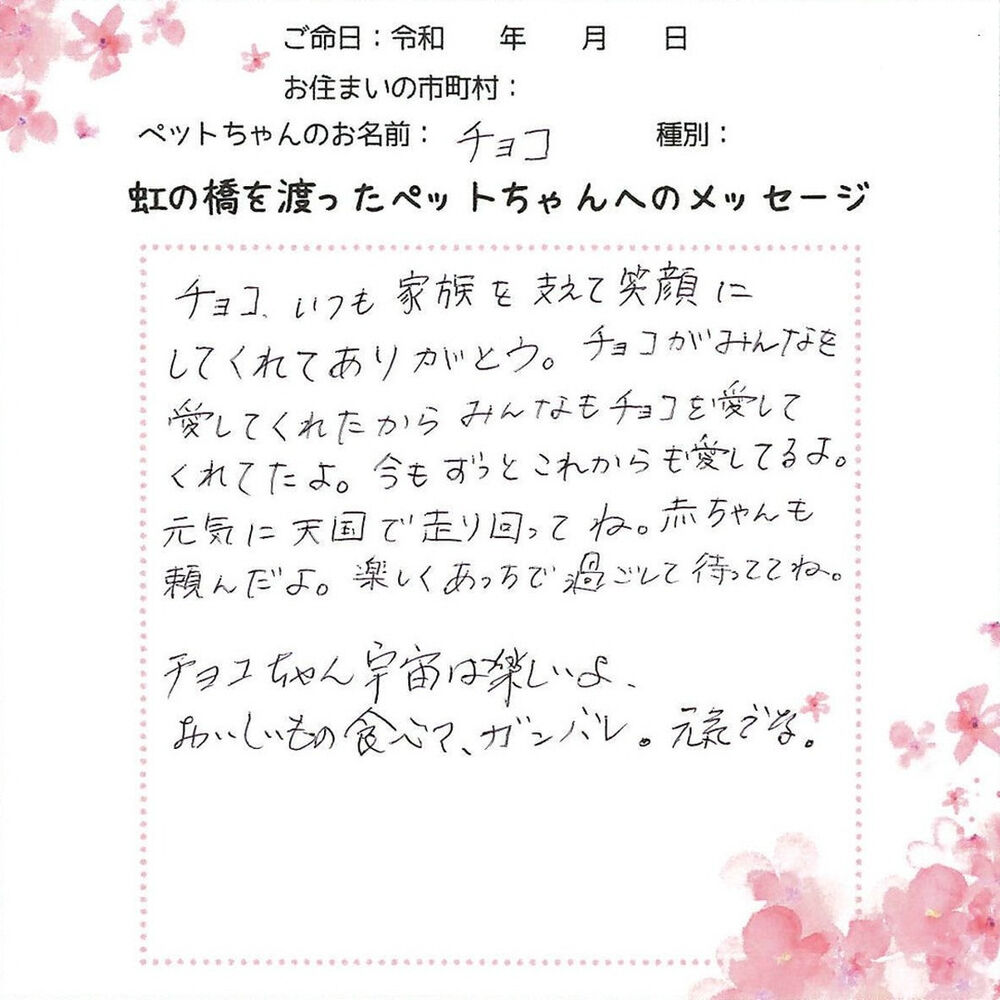 ご命日：令和　　年　　月　　日
お住まいの市町村：
ペットちゃんのお名前：チョコ　　種別：
虹の橋を渡ったペットちゃんへのメッセージ
チョコ、いつも家族を支えて笑顔に
してくれてありがとウ。チョコがみんなを
愛してくれたからみんなもチョコを愛して
くれてたよ。今もずっとこれからも愛してるよ。
元気に天国で走り回ってね。赤ちゃんも
頼んだよ。楽しくあっちで過ごして待っててね。
チョコちゃん宇宙は楽しいよ、
おいしいもの食べて、ガンバレ。元気でな。